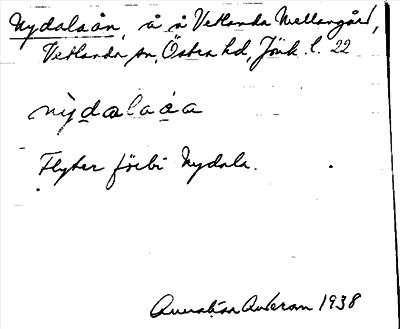 Nydalaån, å å Vetlanda Mellangård,
Vetlanda sn, Östra hd, Jönk. l. 22
nỳdalaáa
Flyter förbi Nydala.
1938